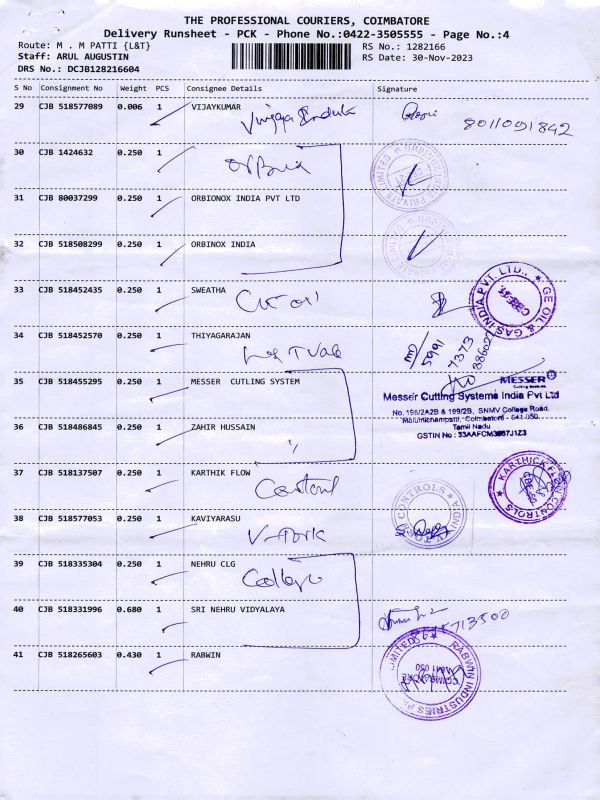 THE PROFESSIONAL COURIERS, COIMBATORE
Delivery Runsheet - PCK - Phone No.:0422-3505555 - Page No.:4
Route: M . M PATTI {L&T}
RS No.: 1282166
Staff: ARUL AUGUSTIN
RS Date: 30-Nov-2023
DRS No.: DCJB128216604
S No Consignment No Weight PCS Consignee Details Signature
29 CJB 518577089 0.006 1 VIJAYKUMAR
8011091842
30 CJB 1424632 0.250 1
31 CJB 80037299 0.250 1 ORBIONOX INDIA PVT LTD
32 CJB 518508299 0.250 1 ORBINOX INDIA
33 CJB 518452435 0.250 1 SWEATHA
GE OIL & GAS INDIA PVT. LTD.,
34 CJB 518452570 0.250 1 THIYAGARAJAN
5991
7373
35 CJB 518455295 0.250 1 MESSER CUTTING SYSTEM
MESSER
Cutting Systems
Messer Cutting Systems India Pvt Ltd
No. 198/2A2B & 199/2B, SNMV College Road,
Malumichampatti, Coimbatore - 641 050.
Tamil Nadu
GSTIN No : 33AAFCM3687J1Z3
36 CJB 518486845 0.250 1 ZAHIR HUSSAIN
37 CJB 518137507 0.250 1 KARTHIK FLOW
Control
KARTHICA FLOW CONTROLS
38 CJB 518577053 0.250 1 KAVIYARASU
V-Tork
CONTROLS
39 CJB 518335304 0.250 1 NEHRU CLG
College
40 CJB 518331996 0.680 1 SRI NEHRU VIDYALAYA
41 CJB 518265603 0.430 1 RABWIN
RABWIN INDUSTRIES